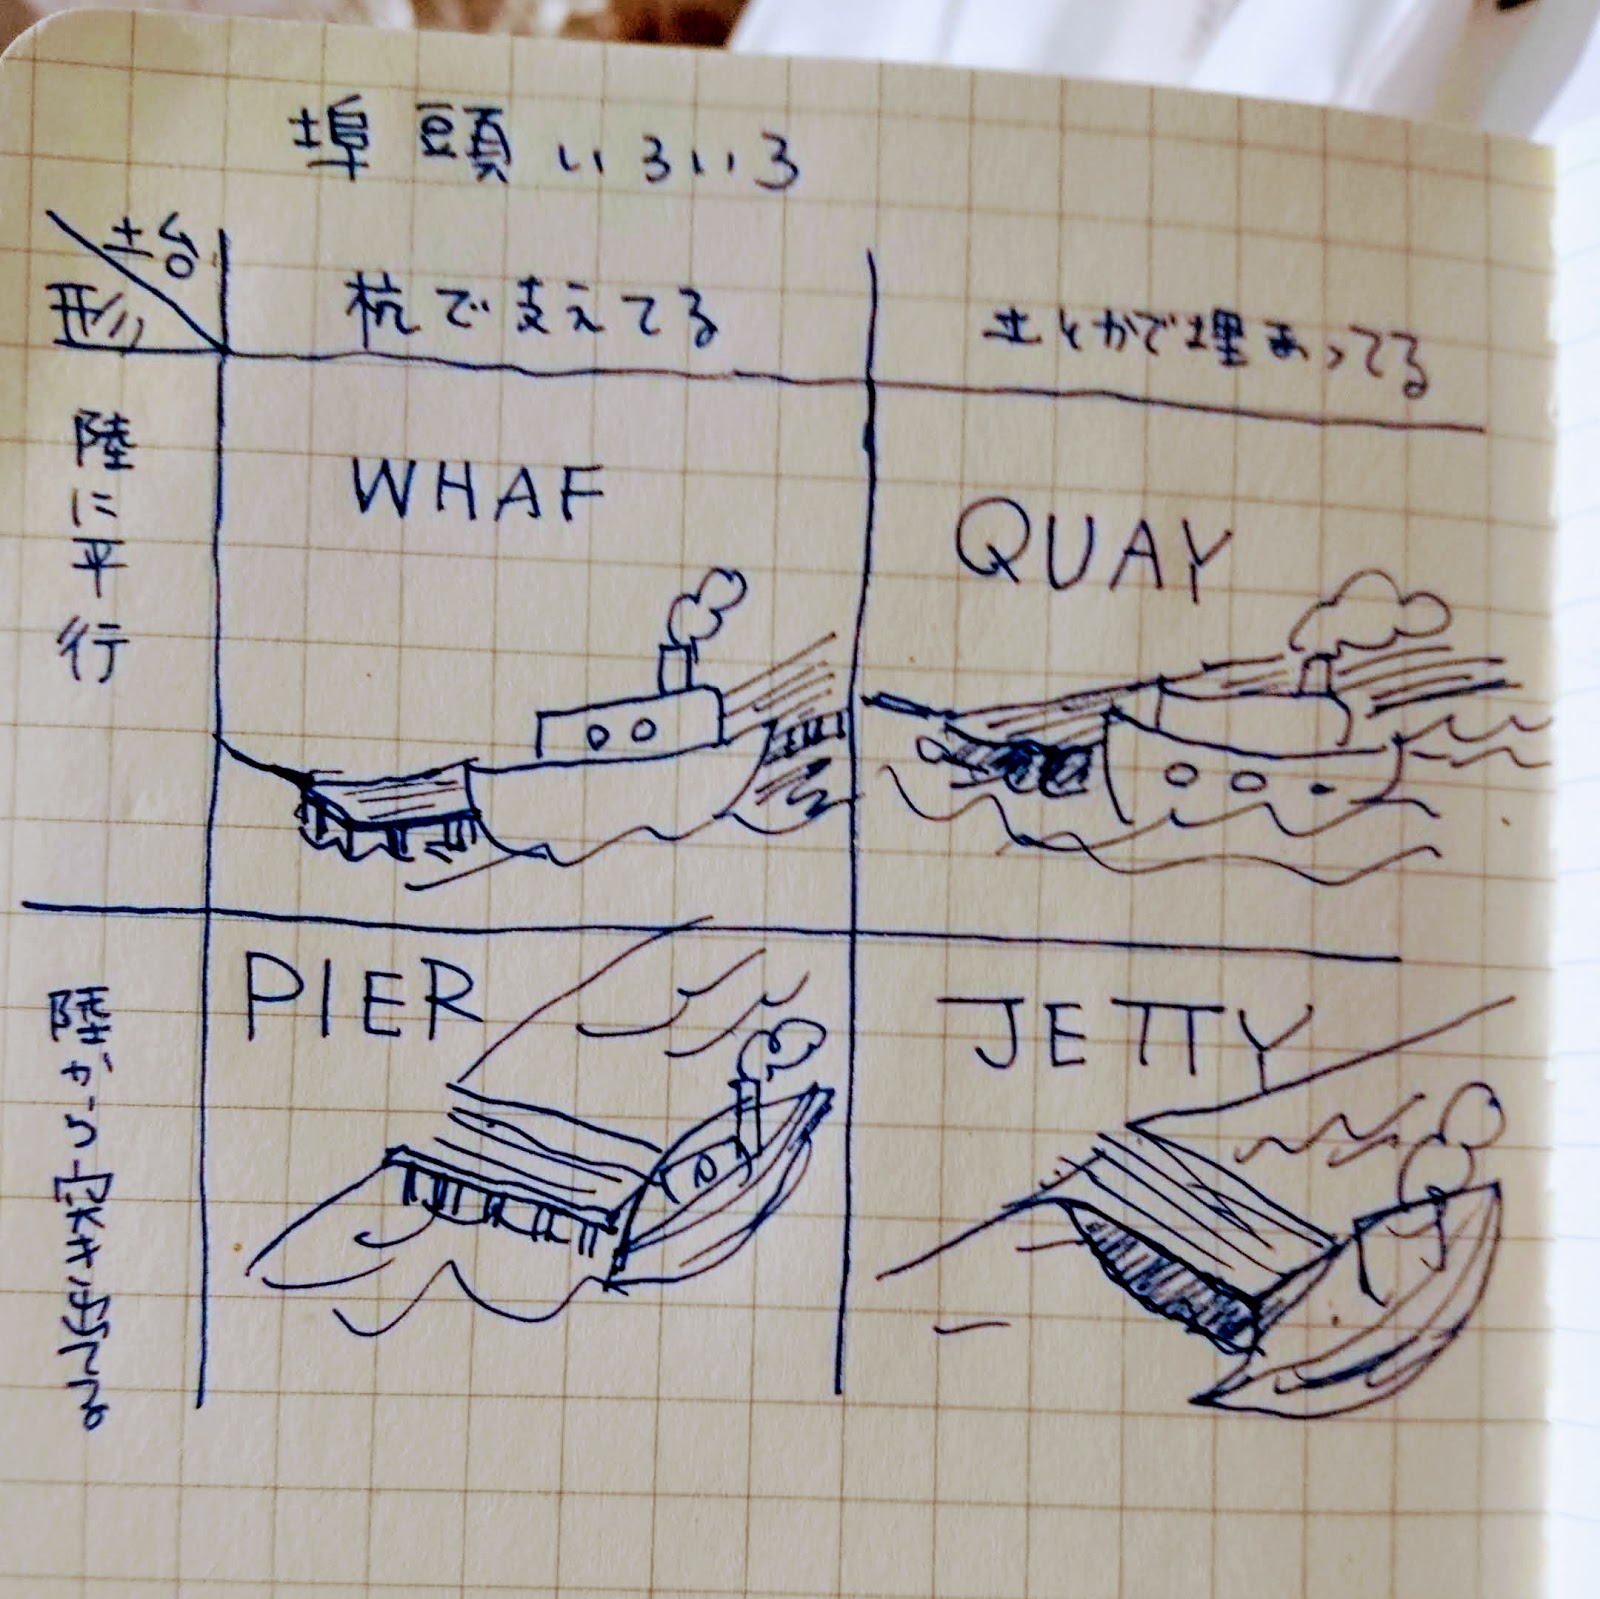 埠頭いろいろ
土台
形
杭で支えてる
土とかで埋まってる
陸に平行
WHAF
QUAY
陸から突き出てる
PIER
JETTY